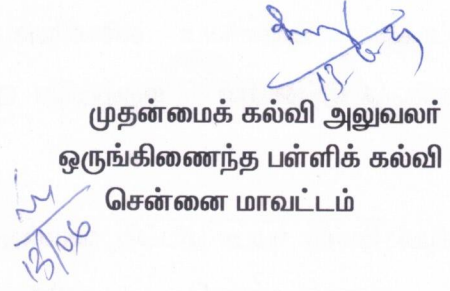 13.6.21
முதன்மைக் கல்வி அலுவலர்
ஒருங்கிணைந்த பள்ளிக் கல்வி
சென்னை மாவட்டம்
13/06